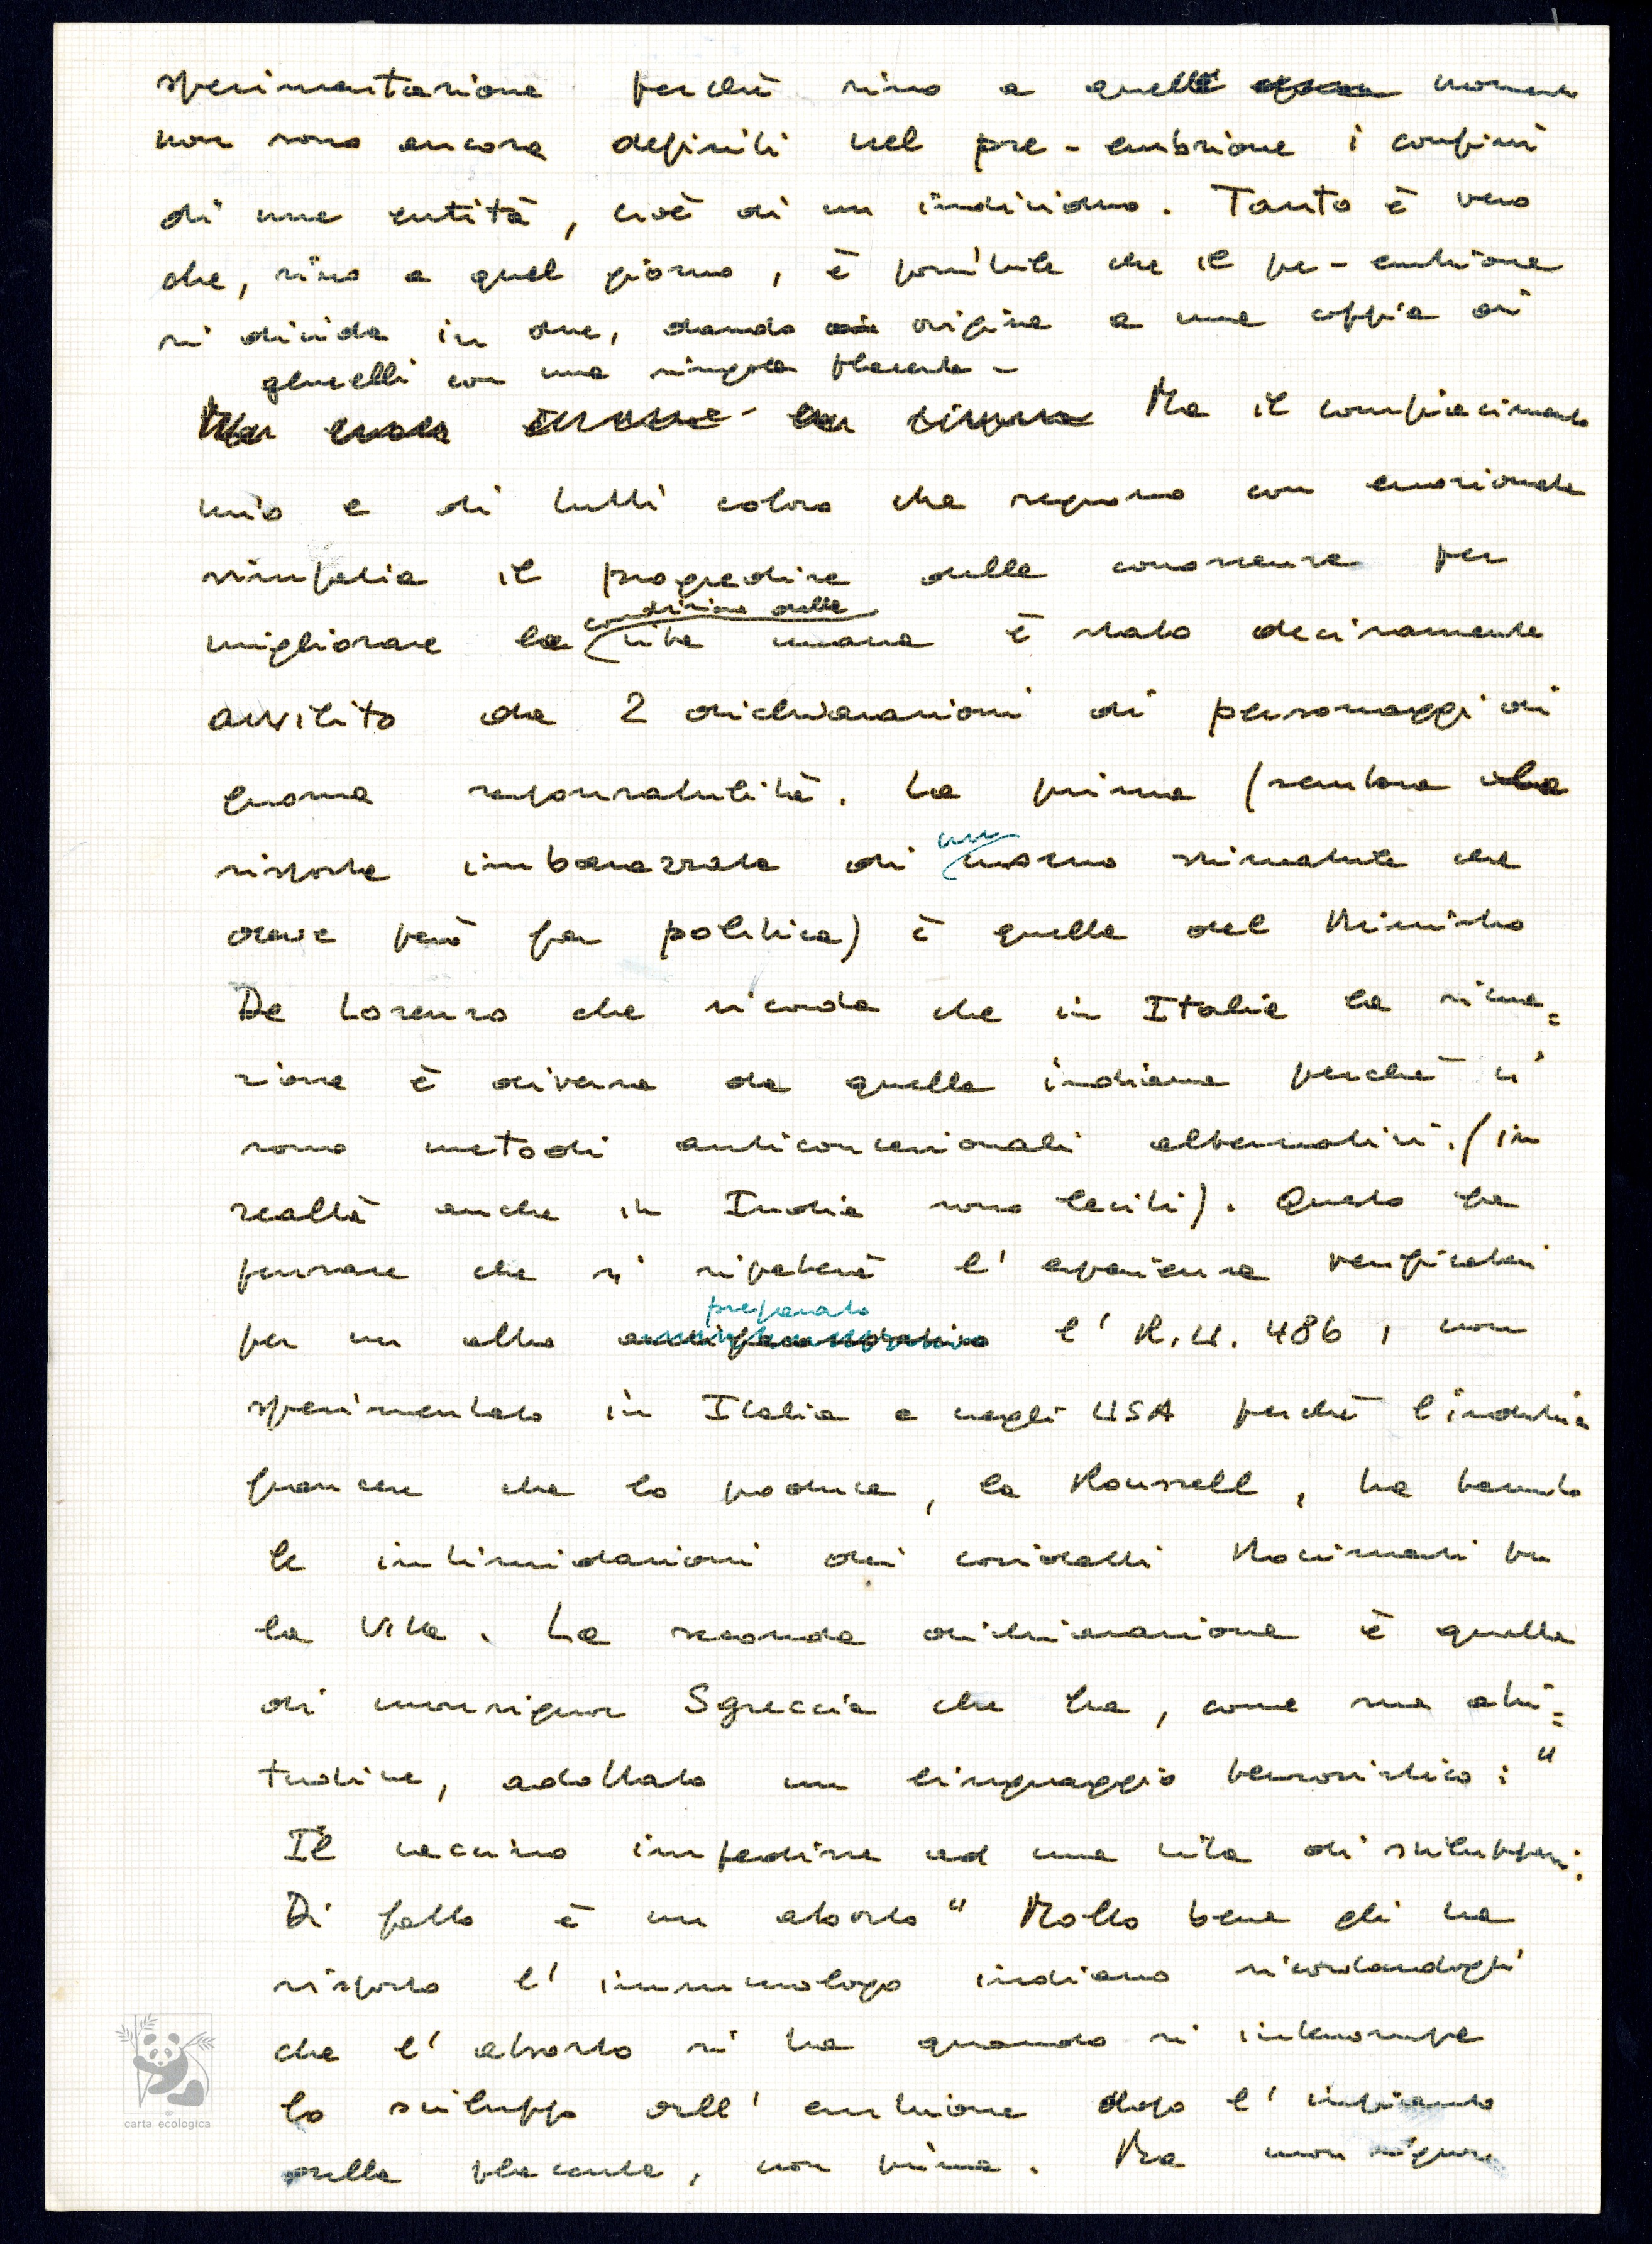 sperimentazione perchè sino a quel momento
non sono ancora definiti nel pre-embrione i confini
di una entità, cioè di un individuo. Tanto è vero
che, sino a quel giorno, è possibile che il pre-embrione
si divida in due, dando origine a una coppia di
gemelli con una singola placenta-
Ma il compiacimento
mio e di tutti coloro che seguono con emozionata
simpatia il progredire delle conoscenze per
condizione della
migliorare la vita umana è stato decisamente
avvilito da 2 dichiarazioni di personaggi di
enorme responsabilità. La prima (sembra una
un
risposta imbarazzata di uomo stimabile che
deve però far politica) è quella del Ministro
De Lorenzo che ricorda che in Italia la situa=
zione è diversa da quella indiana perchè ci
sono metodi anticoncezionali alternativi. (in
realtà anche in India sono leciti). Questo fa
pensare che si ripeterà l'esperienza verificatasi
preparato
per un altro l'R.U. 486, non
sperimentato in Italia e negli USA perchè l'industria
francese che lo produce, la Roussell, ha temuto
le intimidazioni dei cosidetti Movimenti per
la Vita. La seconda dichiarazione è quella
di monsignor Sgreccia che ha, come sua abi=
tudine, adottato un linguaggio terroristico: "
Il vaccino impedisce ad una vita di svilupparsi.
Di fatto è un aborto" Molto bene gli ha
risposto l'immunologo indiano ricordandogli
che l'aborto si ha quando si interrompe
lo sviluppo dell'embrione dopo l'impianto
della placenta, non prima. Ma monsignore
carta ecologica